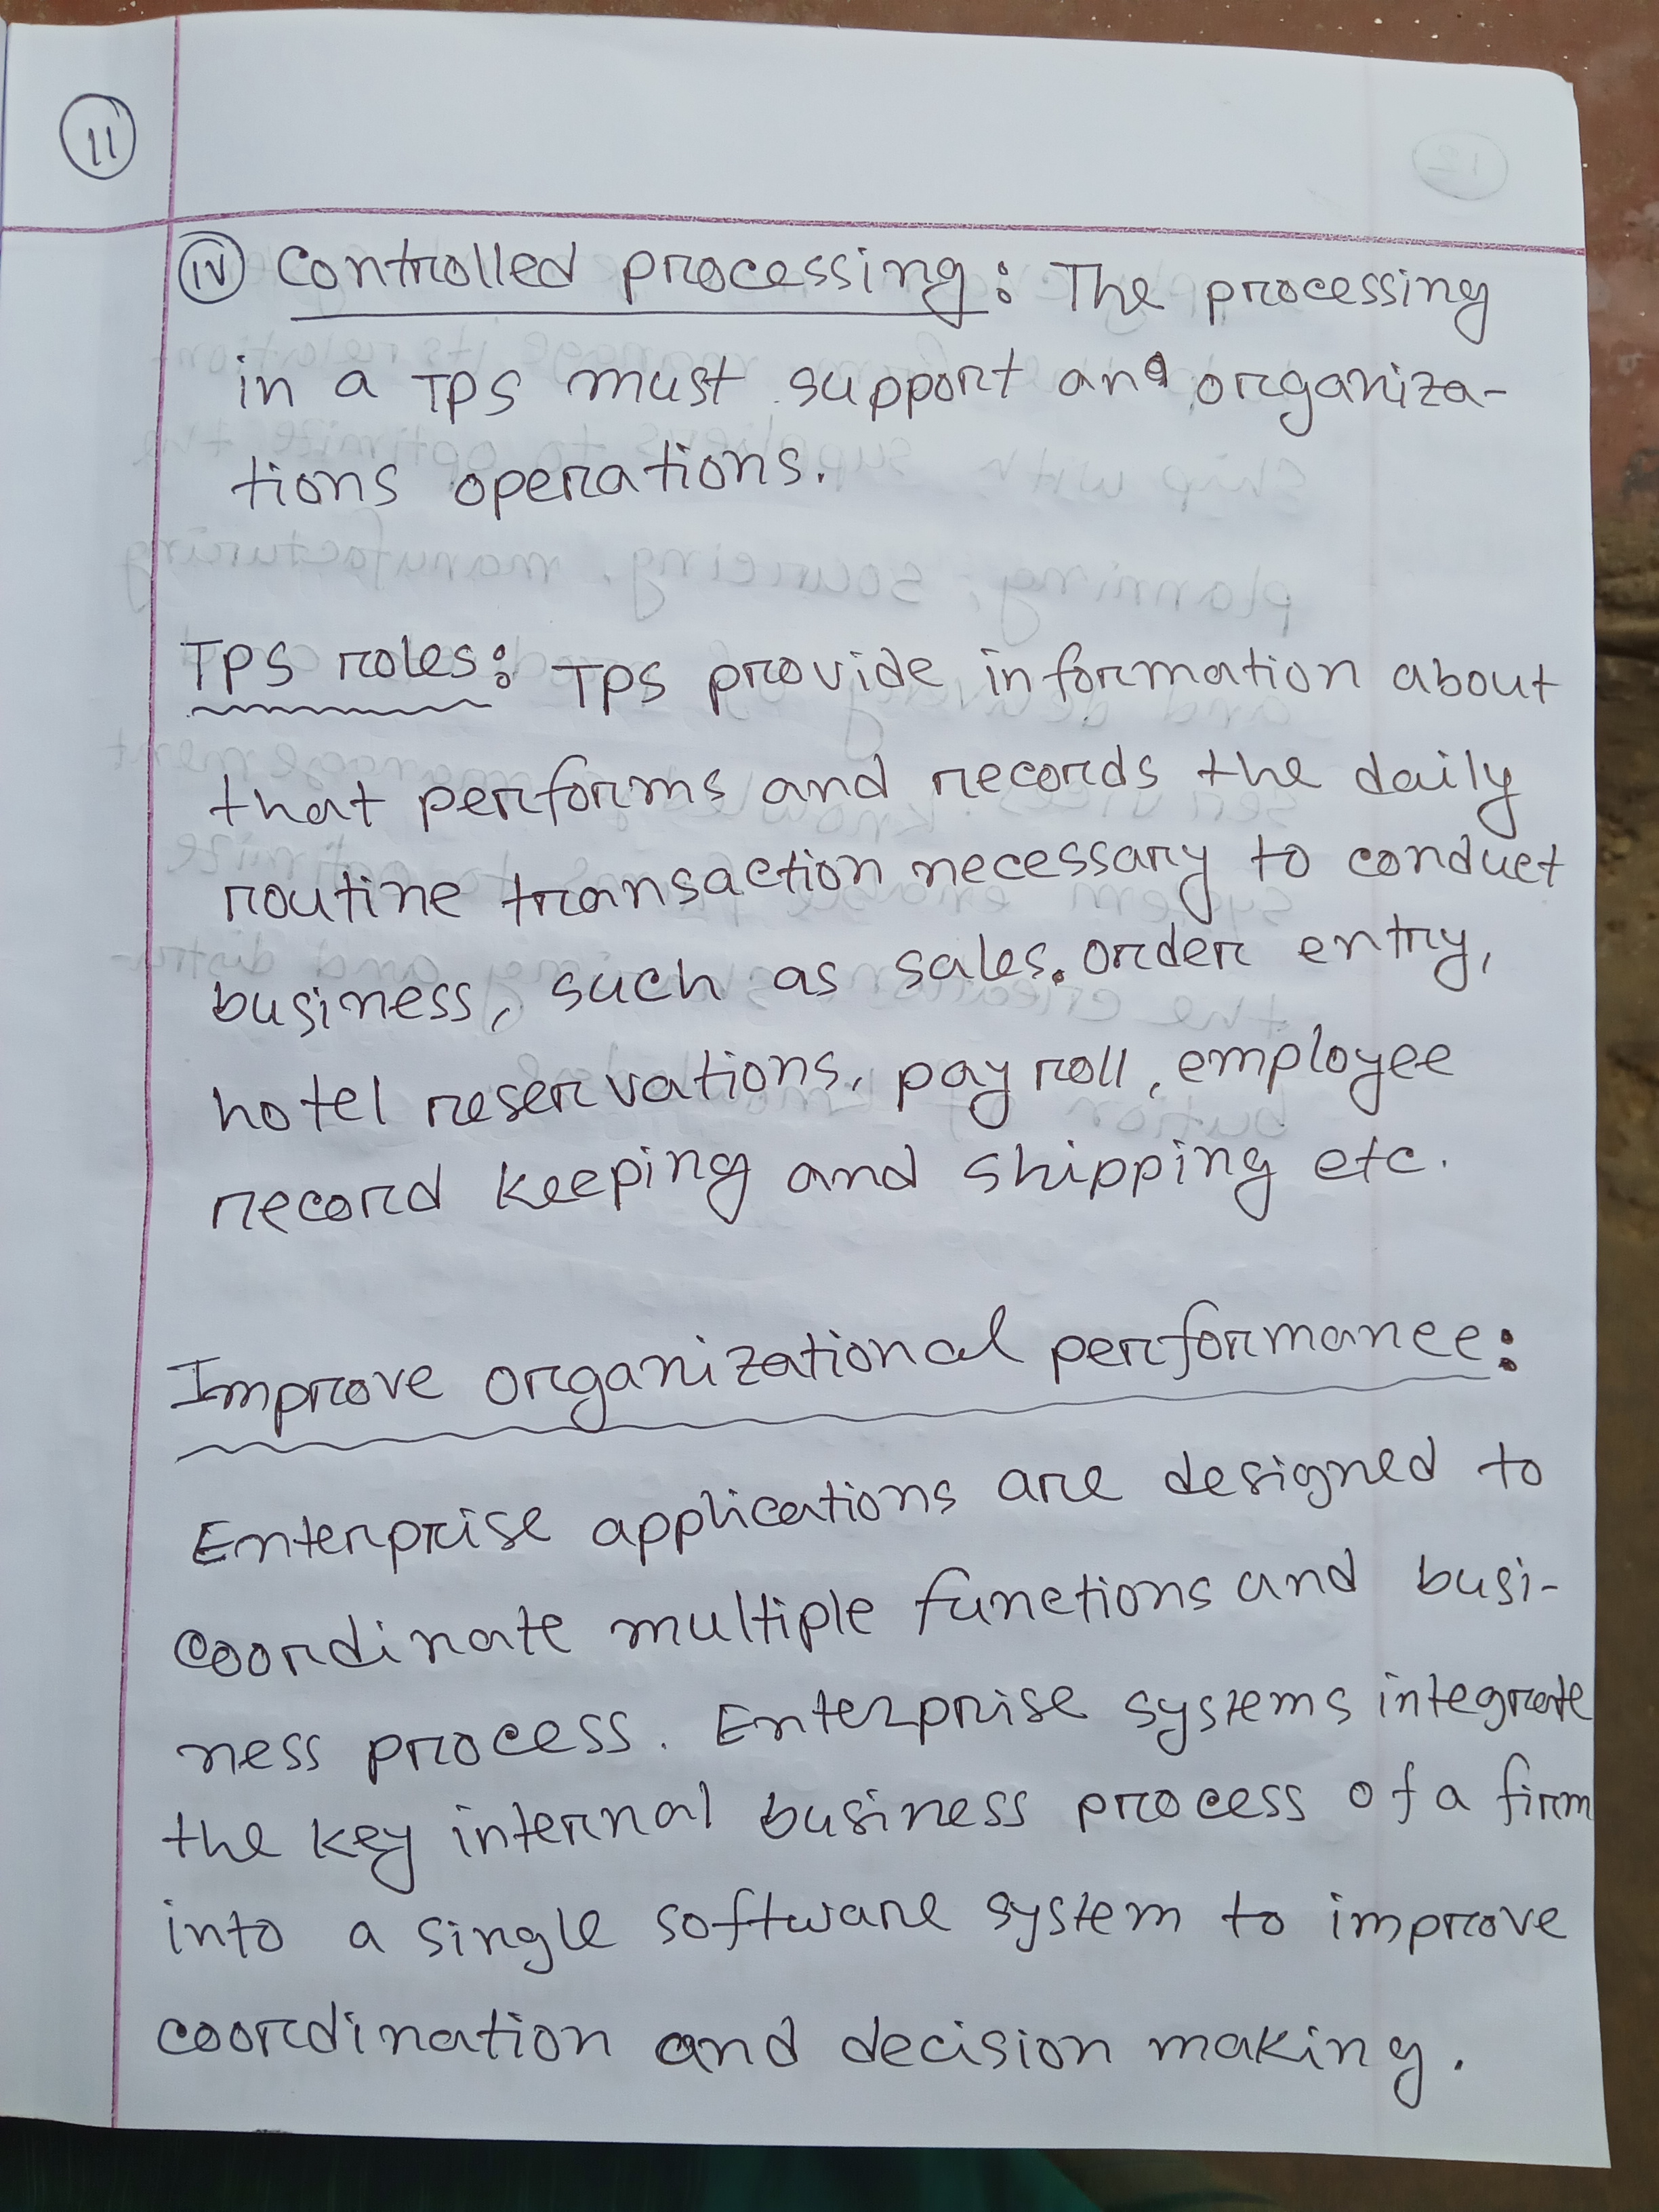 11
(iv) Controlled processing: The processing
in a TPS must support an organiza-
tions operations.
TPS roles: TPS provide information about
that performs and records the daily
routine transaction necessary to conduct
business, such as sales. order entry,
hotel reservations, pay roll, employee
record keeping and shipping etc.
Improve organizational performance:
Enterprise applications are designed to
coordinate multiple functions and busi-
ness process. Enterprise systems integrate
the key internal business process of a firm
into a single software system to improve
coordination and decision making.